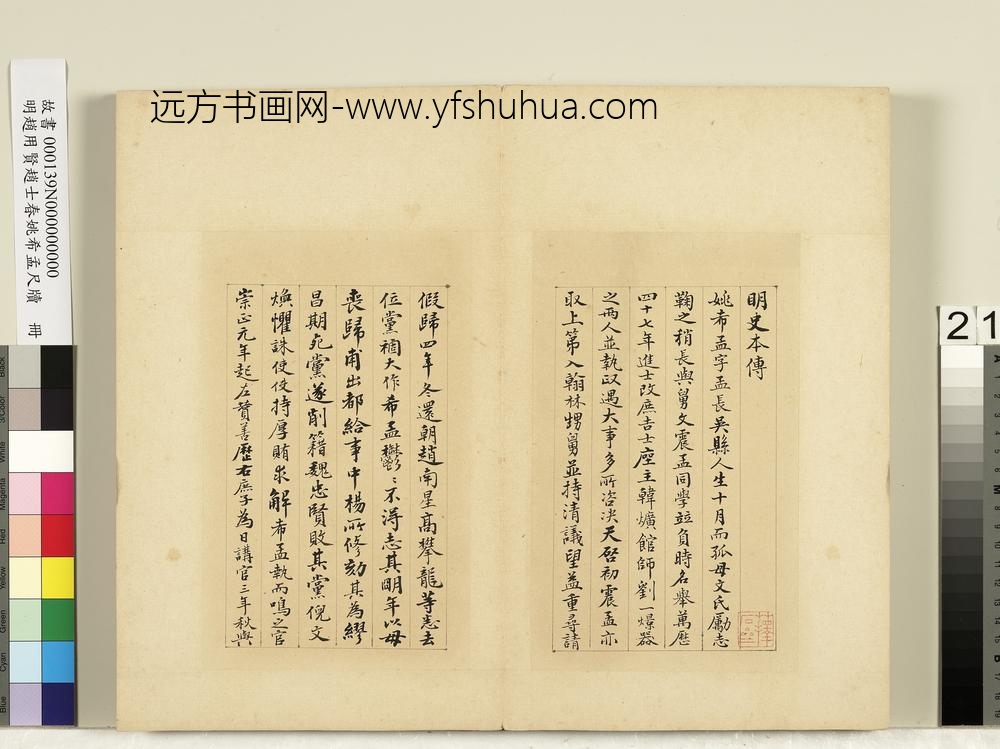 远方书画网-www.yfshuhua.com
故書 000139N000000000
明趙用賢趙士春姚希孟尺牘 冊
明史本傳
姚希孟字孟長吳縣人生十月而孤母文氏勵志
鞠之稍長與舅文震孟同學竝負時名舉萬歷
四十七年進士改庶吉士座主韓爌館師劉一燝器
之兩人並執政遇大事多所咨決天啓初震孟亦
取上第入翰林甥舅並持清議望益重尋請
假歸四年冬還朝趙南星高攀龍等悉去
位黨禍大作希孟鬱〻不得志其明年以母
喪歸甫出都給事中楊所修劾其為繆
昌期死黨遂削籍魏忠賢敗其黨倪文
煥懼誅使使持厚賄求解希孟執而鳴之官
崇正元年起左贊善歷右庶子為日講官三年秋與
21
Black
3/Color
White
Magenta
Red
Yellow
Green
Cyan
Blue
A 1 2 3 4 5 6 M 8 9 10 11 12 13 14 15 B 17 18 19